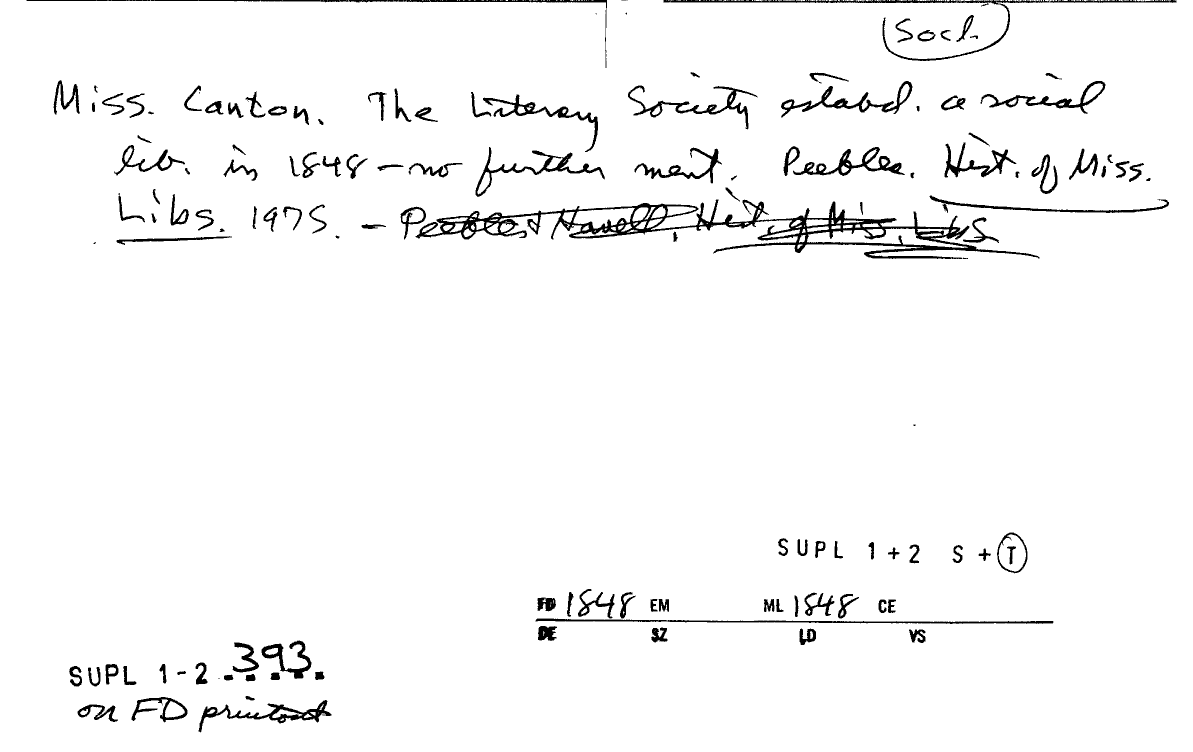 Socl.
Miss. Canton. The Literary Society estabd. a social
lib. in 1848 – no further ment. Peebles. Hist. of Miss.
Libs. 1975. – Peebles & Howell, Hist. of Miss. Libs
SUPL 1+2 S + T
FD 1848 EM ML 1848 CE
DE SZ LD VS
SUPL 1-2 .393.
on FD printout